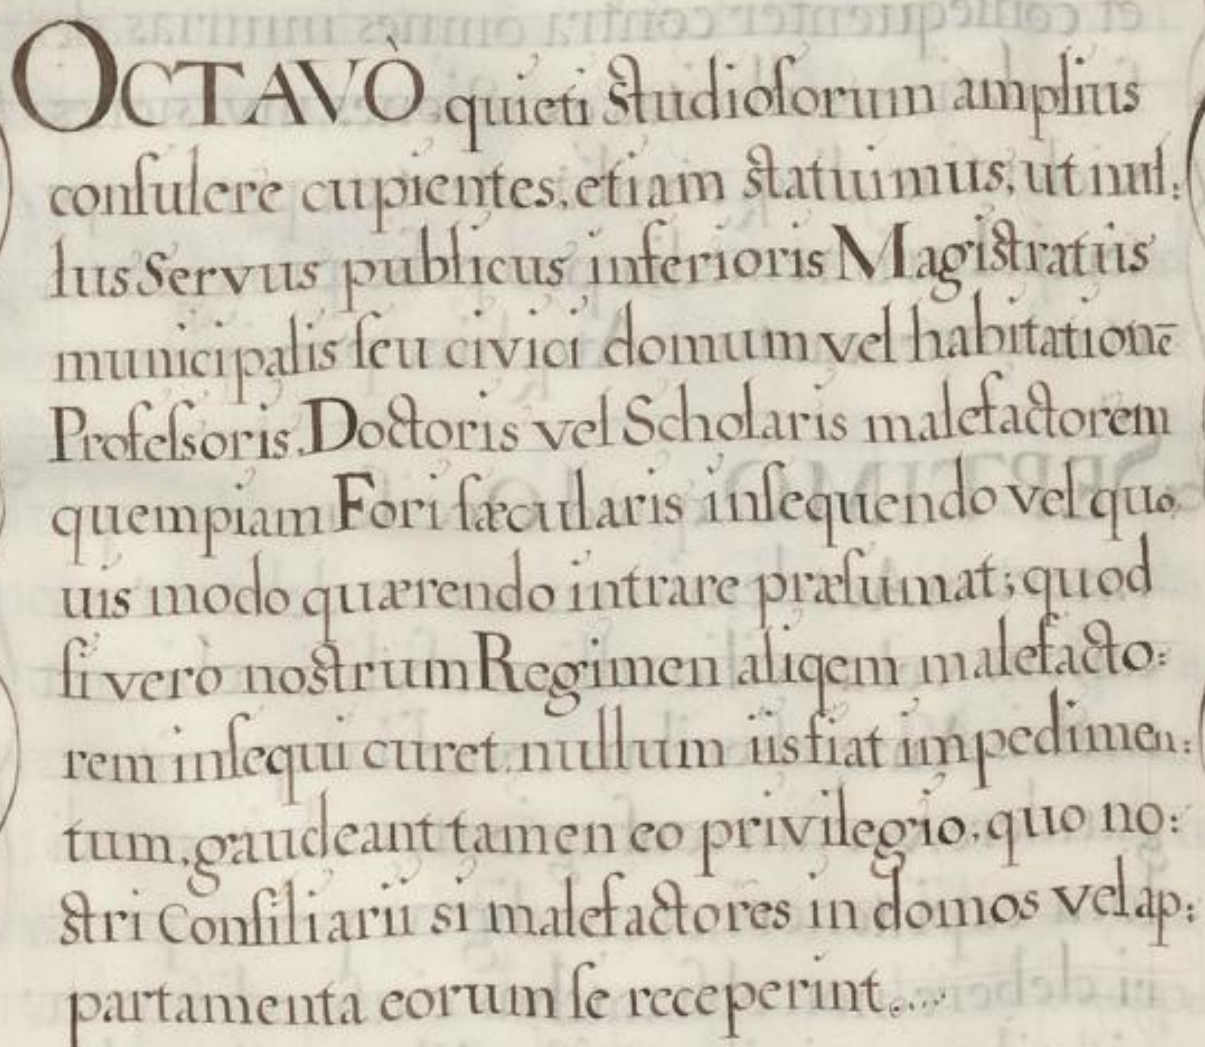 OCTAVÒ quieti ſtudioſorum amplius
conſulere cupientes, etiam ſtatuimus, ut nul:
lus Servus publicus inferioris Magiſtratus
municipalis ſeu civici domum vel habitationē
Profeſsoris, Doctoris vel Scholaris malefactorem
quempiam Fori ſæcularis inſequendo vel quo,
uis modo quærendo intrare præſumat; quod
ſi verò noſtrum Regimen aliqem malefacto:
rem inſequi curet, nullum iis fiat impedimen:
tum, gaudeant tamen eo privilegio, quo no:
ſtri Conſiliarii si malefactores in domos vel ap:
partamenta eorum ſe receperint....